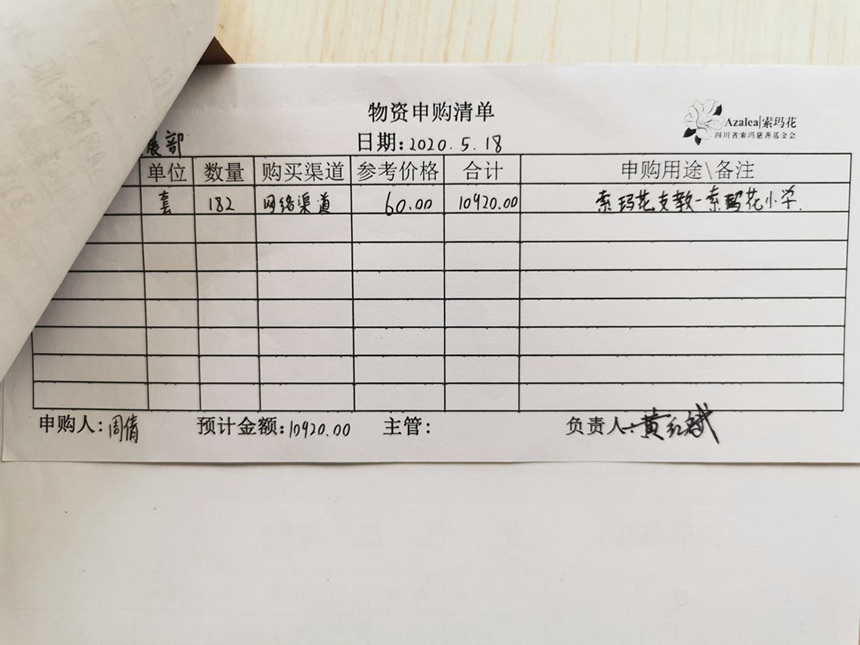 物资申购清单
Azalea|索玛花
四川省索玛慈善基金会
展部 日期:2020.5.18
单位 数量 购买渠道 参考价格 合计 申购用途\备注
套 182 网络渠道 60.00 10920.00 索玛花支教-索玛花小学.
申购人:周倩 预计金额:10920.00 主管: 负责人:黄红斌